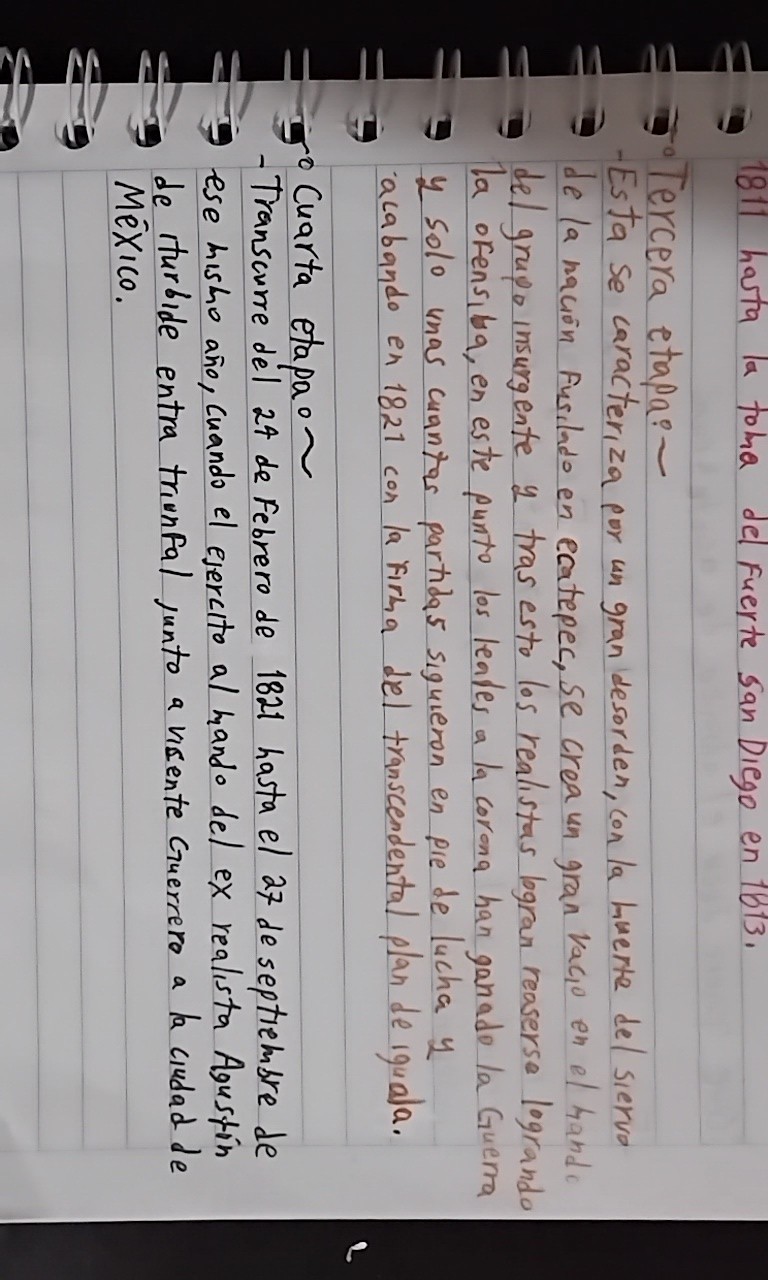 1811 hasta la toma del fuerte San Diego en 1813.
Tercera etapa:~
- Esta se caracteriza por un gran desorden, con la muerte del siervo
de la nación Fusilado en ecatepec, se crea un gran vacío en el mando
del grupo insurgente y tras esto los realistas logran reaserse logrando
la ofensiba, en este punto los leales a la corona han ganado la Guerra
y solo unas cuantas partidas siguieron en pie de lucha y
acabando en 1821 con la Firma del transcendental plan de iguala.
Cuarta etapa:~
- Transcurre del 24 de Febrero de 1821 hasta el 27 de septiembre de
ese mismo año, cuando el ejercito al mando del ex realista Agustín
de iturbide entra triunfal junto a visente Guerrero a la ciudad de
México.